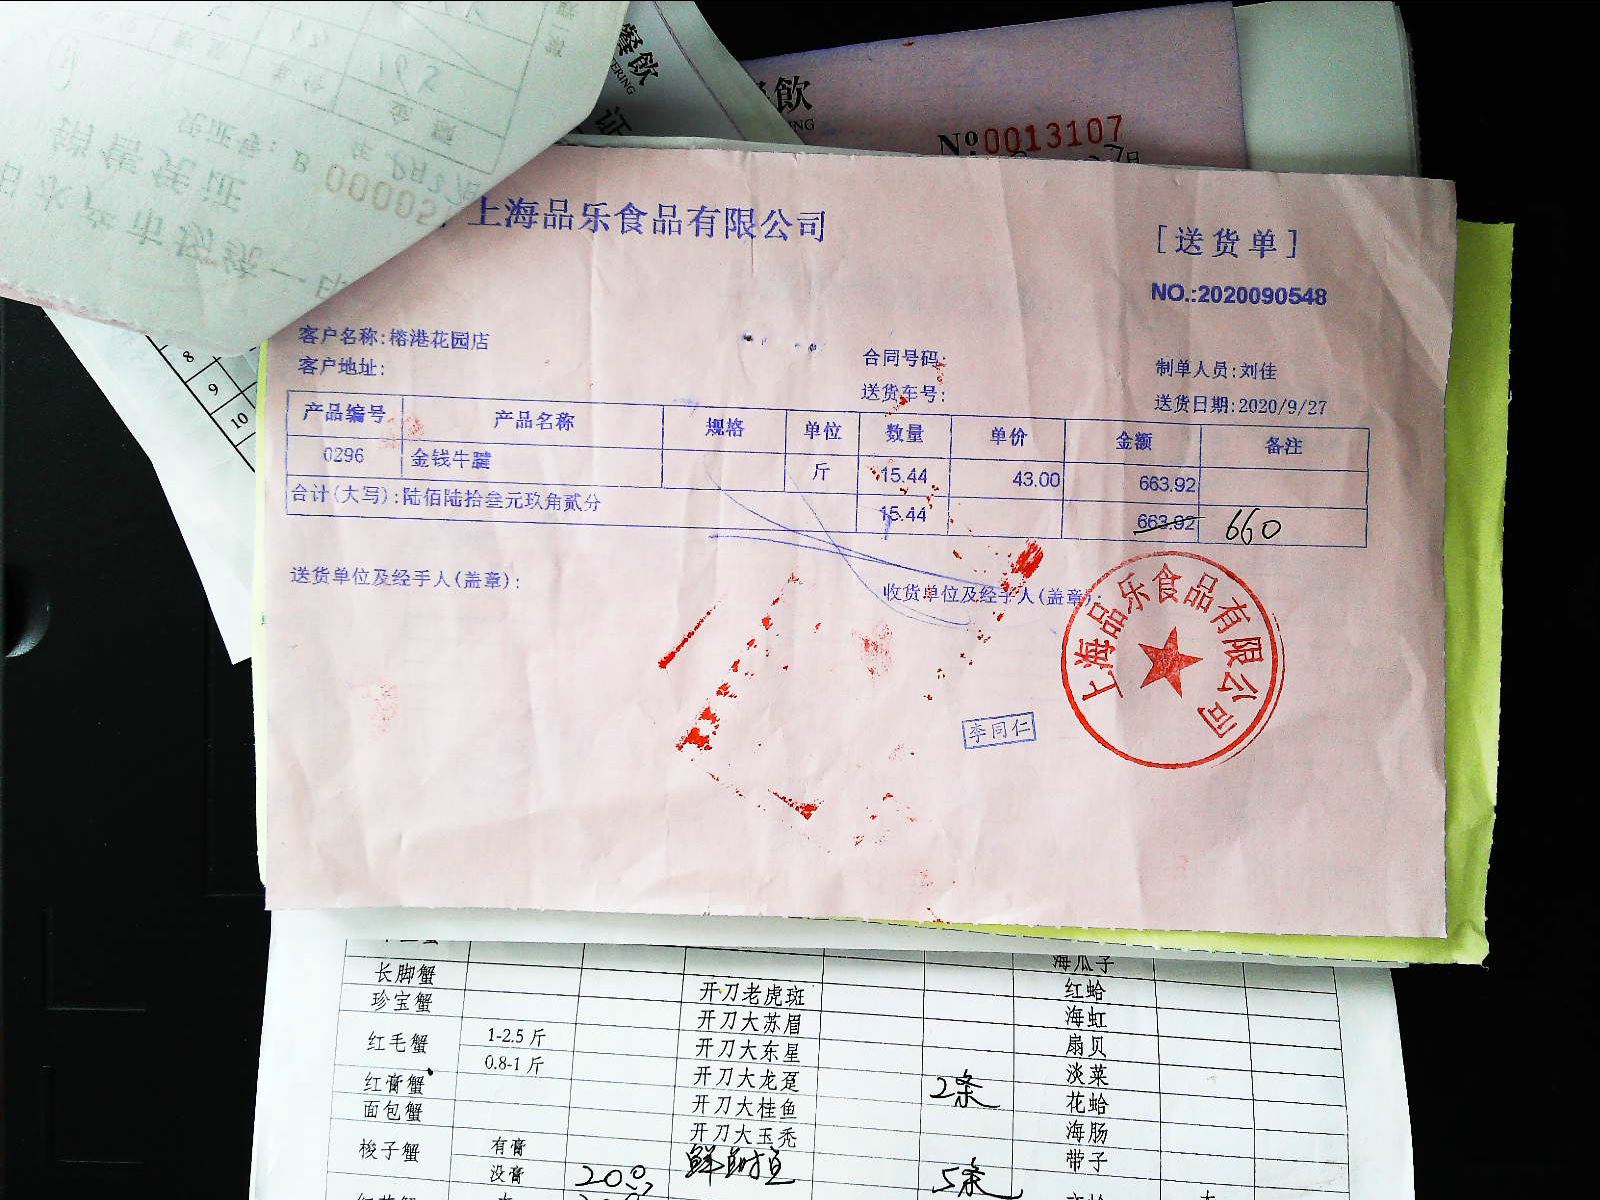 餐飲
证
飲
№0013107
7日
上海品乐食品有限公司
[送货单]
NO.:2020090548
客户名称:榕港花园店
客户地址:
合同号码:
送货车号:
制单人员:刘佳
送货日期:2020/9/27
产品编号 产品名称 规格 单位 数量 单价 金额 备注
0296 金钱牛腱 斤 15.44 43.00 663.92
合计(大写):陆佰陆拾叁元玖角贰分 15.44 663.92 660
送货单位及经手人(盖章):
收货单位及经手人(盖章):
上海品乐食品有限公司
李同仁
8
9
10
海瓜子
长脚蟹 开刀老虎斑 红蛤
珍宝蟹 开刀大苏眉 海虹
红毛蟹 1-2.5 斤 开刀大东星 扇贝
0.8-1 斤 开刀大龙趸 2条 淡菜
红膏蟹 开刀大桂鱼 花蛤
面包蟹 开刀大玉秃 海肠
梭子蟹 有膏 带子
没膏 5条